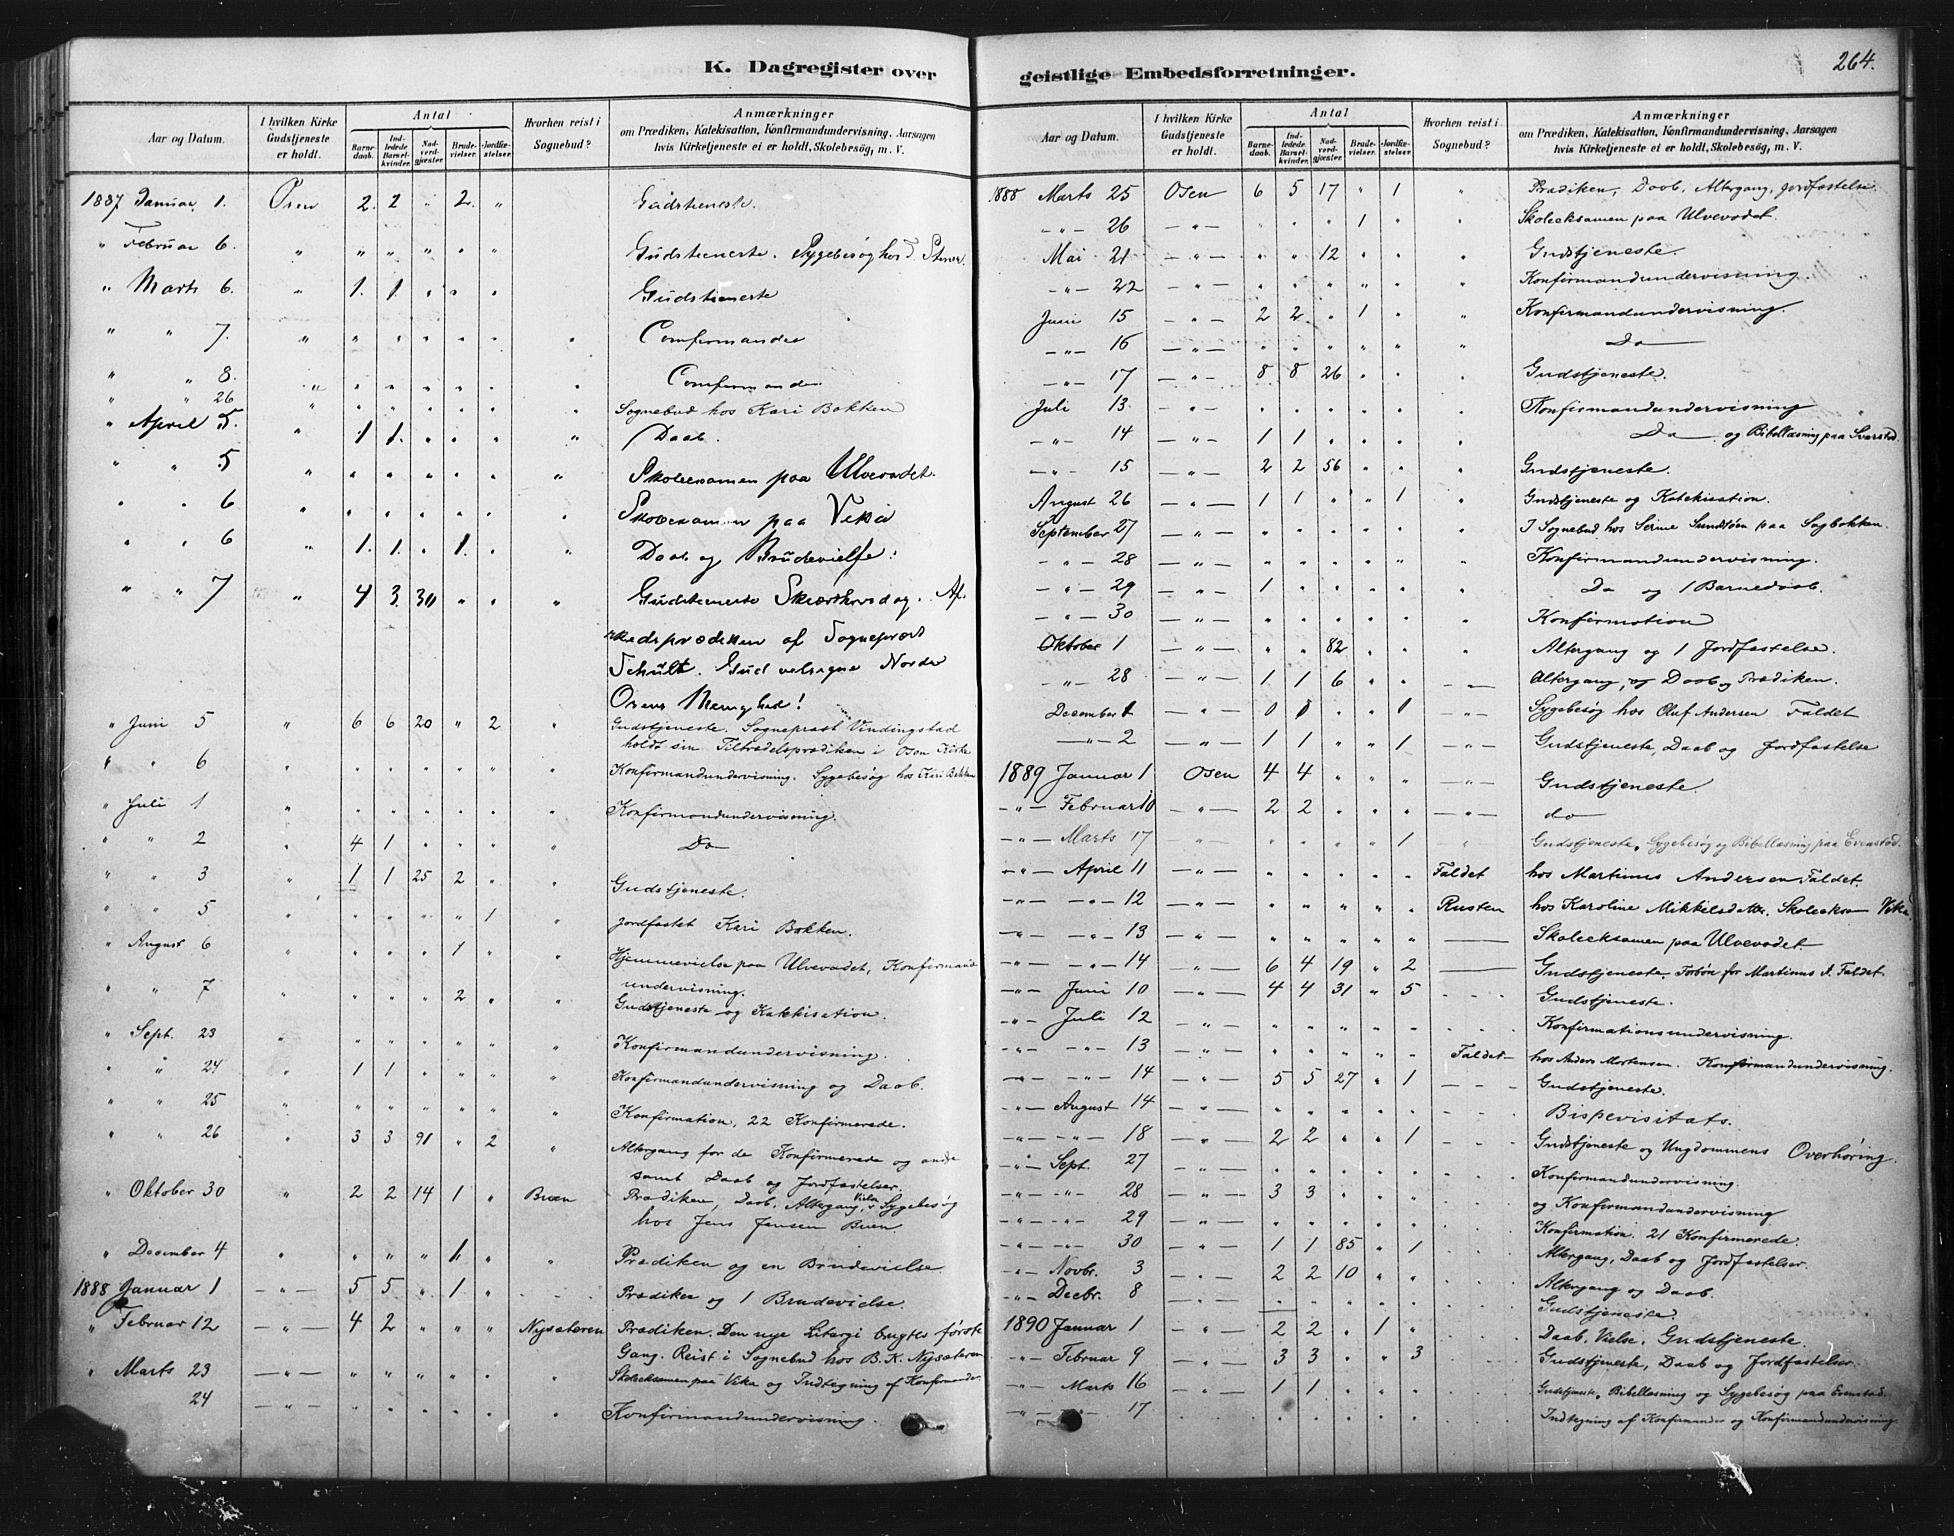 K. Dagregister over geistlige Embedsforretninger.
264.
Aar og Datum. | I hvilken Kirke Gudstjeneste er holdt. | Antal | Barnedaab. | Indledede Barselkvinder. | Nadverdgjester. | Brudevielser. | Jordfæstelser. | Hvorhen reist i Sognebud? | Anmærkninger om Prædiken, Katekisation, Konfirmandundervisning, Aarsagen hvis Kirketjeneste ei er holdt, Skolebesøg, m. V.
1887 Januar 1. Osen 2. 2 " 2. " Gudstieneste.
" Februar 6. " " " " " " Gudstieneste. Sygebesøg hos
" Marts 6. " 1. 1. " " " Gudstieneste
" " 7. " " " " " " " Comfirmander
" " 8. " " " " " " " Comfirmander
" " 26 " " " " " " " Sognebud hos Kari Bakken
" April 5. " 1 1. " " " " Daab.
" " 5 " " " " " " " Skoleexamen paa Ulvevadet.
" " 6 " " " " " " " Skoleexamen paa Vika
" " 6 " 1. 1. " 1. " " Daab og Brudevielse.
" " 7 " 4 3. 30 " " " Gudstieneste Skiærthorsdag. Af-
skedsprædiken af Sogneprest
Schült. Gud velsigne Nordre
Osens Menighed!
" Juni 5 " 6 6 20 " 2 " Gudstjeneste. Sognepræst Vindingstad
holdt sin Tiltrædelsprædiken i Osen Kirke
" " 6 " " " " " " " Konfirmandundervisning. Sygebesøg hos Kari Bakken
" Juli 1 " " " " " " " Konfirmandundervisning.
" " 2 " 4 1 " " " " Do
" " 3 " 1 1 25 2 " " Gudstjeneste.
" " 5 " " " " " 1 " Jordfæstet Kari Bakken.
" August 6 " " " " 1 " " Hjemmevielse paa Ulvevadet, Konfirmand-
undervisning.
" " 7 " " " " 2 " " Gudstjeneste og Katekisation.
" Sept. 23 " " " " " " " Konfirmandundervisning.
" " 24 " 1 1 " " " " Konfirmandundervisning og Daab.
" " 25 " " " " " " " Konfirmation, 22 Konfirmerede.
" " 26 " 3 3 91 " 2 " Altergang for de Konfirmerede og andre
samt Daab og Jordfæstelser.
" Oktober 30 " 2 2 14 1 " Buen Prædiken, Daab, Altergang, Vielse, Sygebesøg
hos Jens Jensen Buen.
" December 4 " " " " 1 " " Prædiken og en Brudevielse.
1888 Januar 1 — " — 5 5 " 1 " Prædiken og 1 Brudevielse.
" Februar 12 — " — 4 2 " " " Nysæteren Prædiken. Den nye Liturgi brugtes første
Gang. Reist i Sognebud hos B. K. Nysæteren
" Marts 23 — " — " " " " " " Skoleeksamen paa Vika og Indtegning af Konfirmander
24 — " — " " " " " " Konfirmandundervisning.
1888 Marts 25 Osen 6 5 17 " 1 " Prædiken, Daab, Altergang, Jordfæstelse.
— " — 26 — " — " " " 1 " " Skoleeksamen paa Ulvevadet.
Mai 21 — " — " " 12 " " " Gudstjeneste.
— " — 22 — " — " " " " " " Konfirmandundervisning.
Juni 15 — " — 2 2 " 1 " " Konfirmandundervisning.
— " — 16 — " — " " " " " " Do
— " — 17 — " — 8 8 26 " " " Gudstjeneste.
Juli 13 — " — " " " " " " Konfirmandundervisning
— " — 14 — " — 1 1 " " " " Do og Bibellæsning paa
— " — 15 — " — 2 2 56 " " " Gudstjeneste.
August 26 — " — 1 1 " " 1 " Gudstjeneste og Katekisation.
September 27 — " — " " " " " " I Sognebud hos Serine Sundstøen paa Sagbakken.
— " — 28 — " — " " " " " " Konfirmandundervisning.
— " — 29 — " — 1 " " " " " Do og 1 Barnedaab.
— " — 30 — " — " " " " " " Konfirmation
Oktober 1 — " — " " 82 " " " Altergang og 1 Jordfæstelse.
— " — 28 — " — 1 1 6 " " Altergang, og Daab og Prædiken.
December 1 — " — " " 1 — " — Sygebesøg hos Oluf Andersen Faldet
— " — 2 — " — 1 1 " " 1 — " — Gudstjeneste, Daab og Jordfæstelse
1889 Januar 1 Osen 4 4 " " " — " — Gudstjeneste
— " — Februar 10 — " — 2 2 " " " — " — do
— " — Marts 17 — " — " " " " 1 " Gudstjeneste, Sygebesøg og Bibellæsning paa Evenstad.
— " — April 11 — " — " " " " " Faldet hos Martinus Andersen Faldet.
— " — — " — 12 — " — " " " " " Rusten hos Karoline Mikkelsdatter, Skoleeksamen Vika
— " — — " — 13 — " — " " " " " — Skoleeksamen paa Ulvevadet
— " — — " — 14 — " — 6 4 19 " 2 — Gudstjeneste. Forbøn for Martinus A. Faldet.
— " — Juni 10 — " — 4 4 31 " 5 Gudstjeneste.
— " — Juli 12 — " — " " " " " Konfirmationsundervisning.
— " — — " — 13 — " — " " " " " Faldet hos Anders Mortensen. Konfirmandundervisning.
— " — — " — 14 — " — 5 5 27 " 1 Gudstjeneste.
— " — August 14 — " — " " " " " Bispevisitats.
— " — — " — 18 — " — 2 2 " " 1 Gudstjeneste og Ungdommens Overhøring.
— " — Sept. 27 — " — " " " " " Konfirmandundervisning.
— " — — " — 28 — " — 3 3 " " " og Konfirmandundervisning
— " — — " — 29 — " — " " " " " Konfirmation. 21 Konfirmerede.
— " — — " — 30 — " — 1 1 85 " 1 Altergang, Daab og Jordfæstelser.
— " — Novbr. 3 — " — 2 2 10 " " Altergang og Daab.
— " — Decbr. 8 — " — " " " " " Gudstjeneste.
1890 Januar 1 — " — 2 2 " 1 " Daab, Vielse, Gudstjeneste.
— " — Februar 9 — " — 3 3 " " 3 Gudstjeneste, Daab og Jordfæstelser.
— " — Marts 16 — " — 1 1 " " " Gudstjeneste, Bibellæsning og Sygebesøg paa Evenstad.
— " — — " — 17 Indtegning af Konfirmander og Konfirmandundervisning.